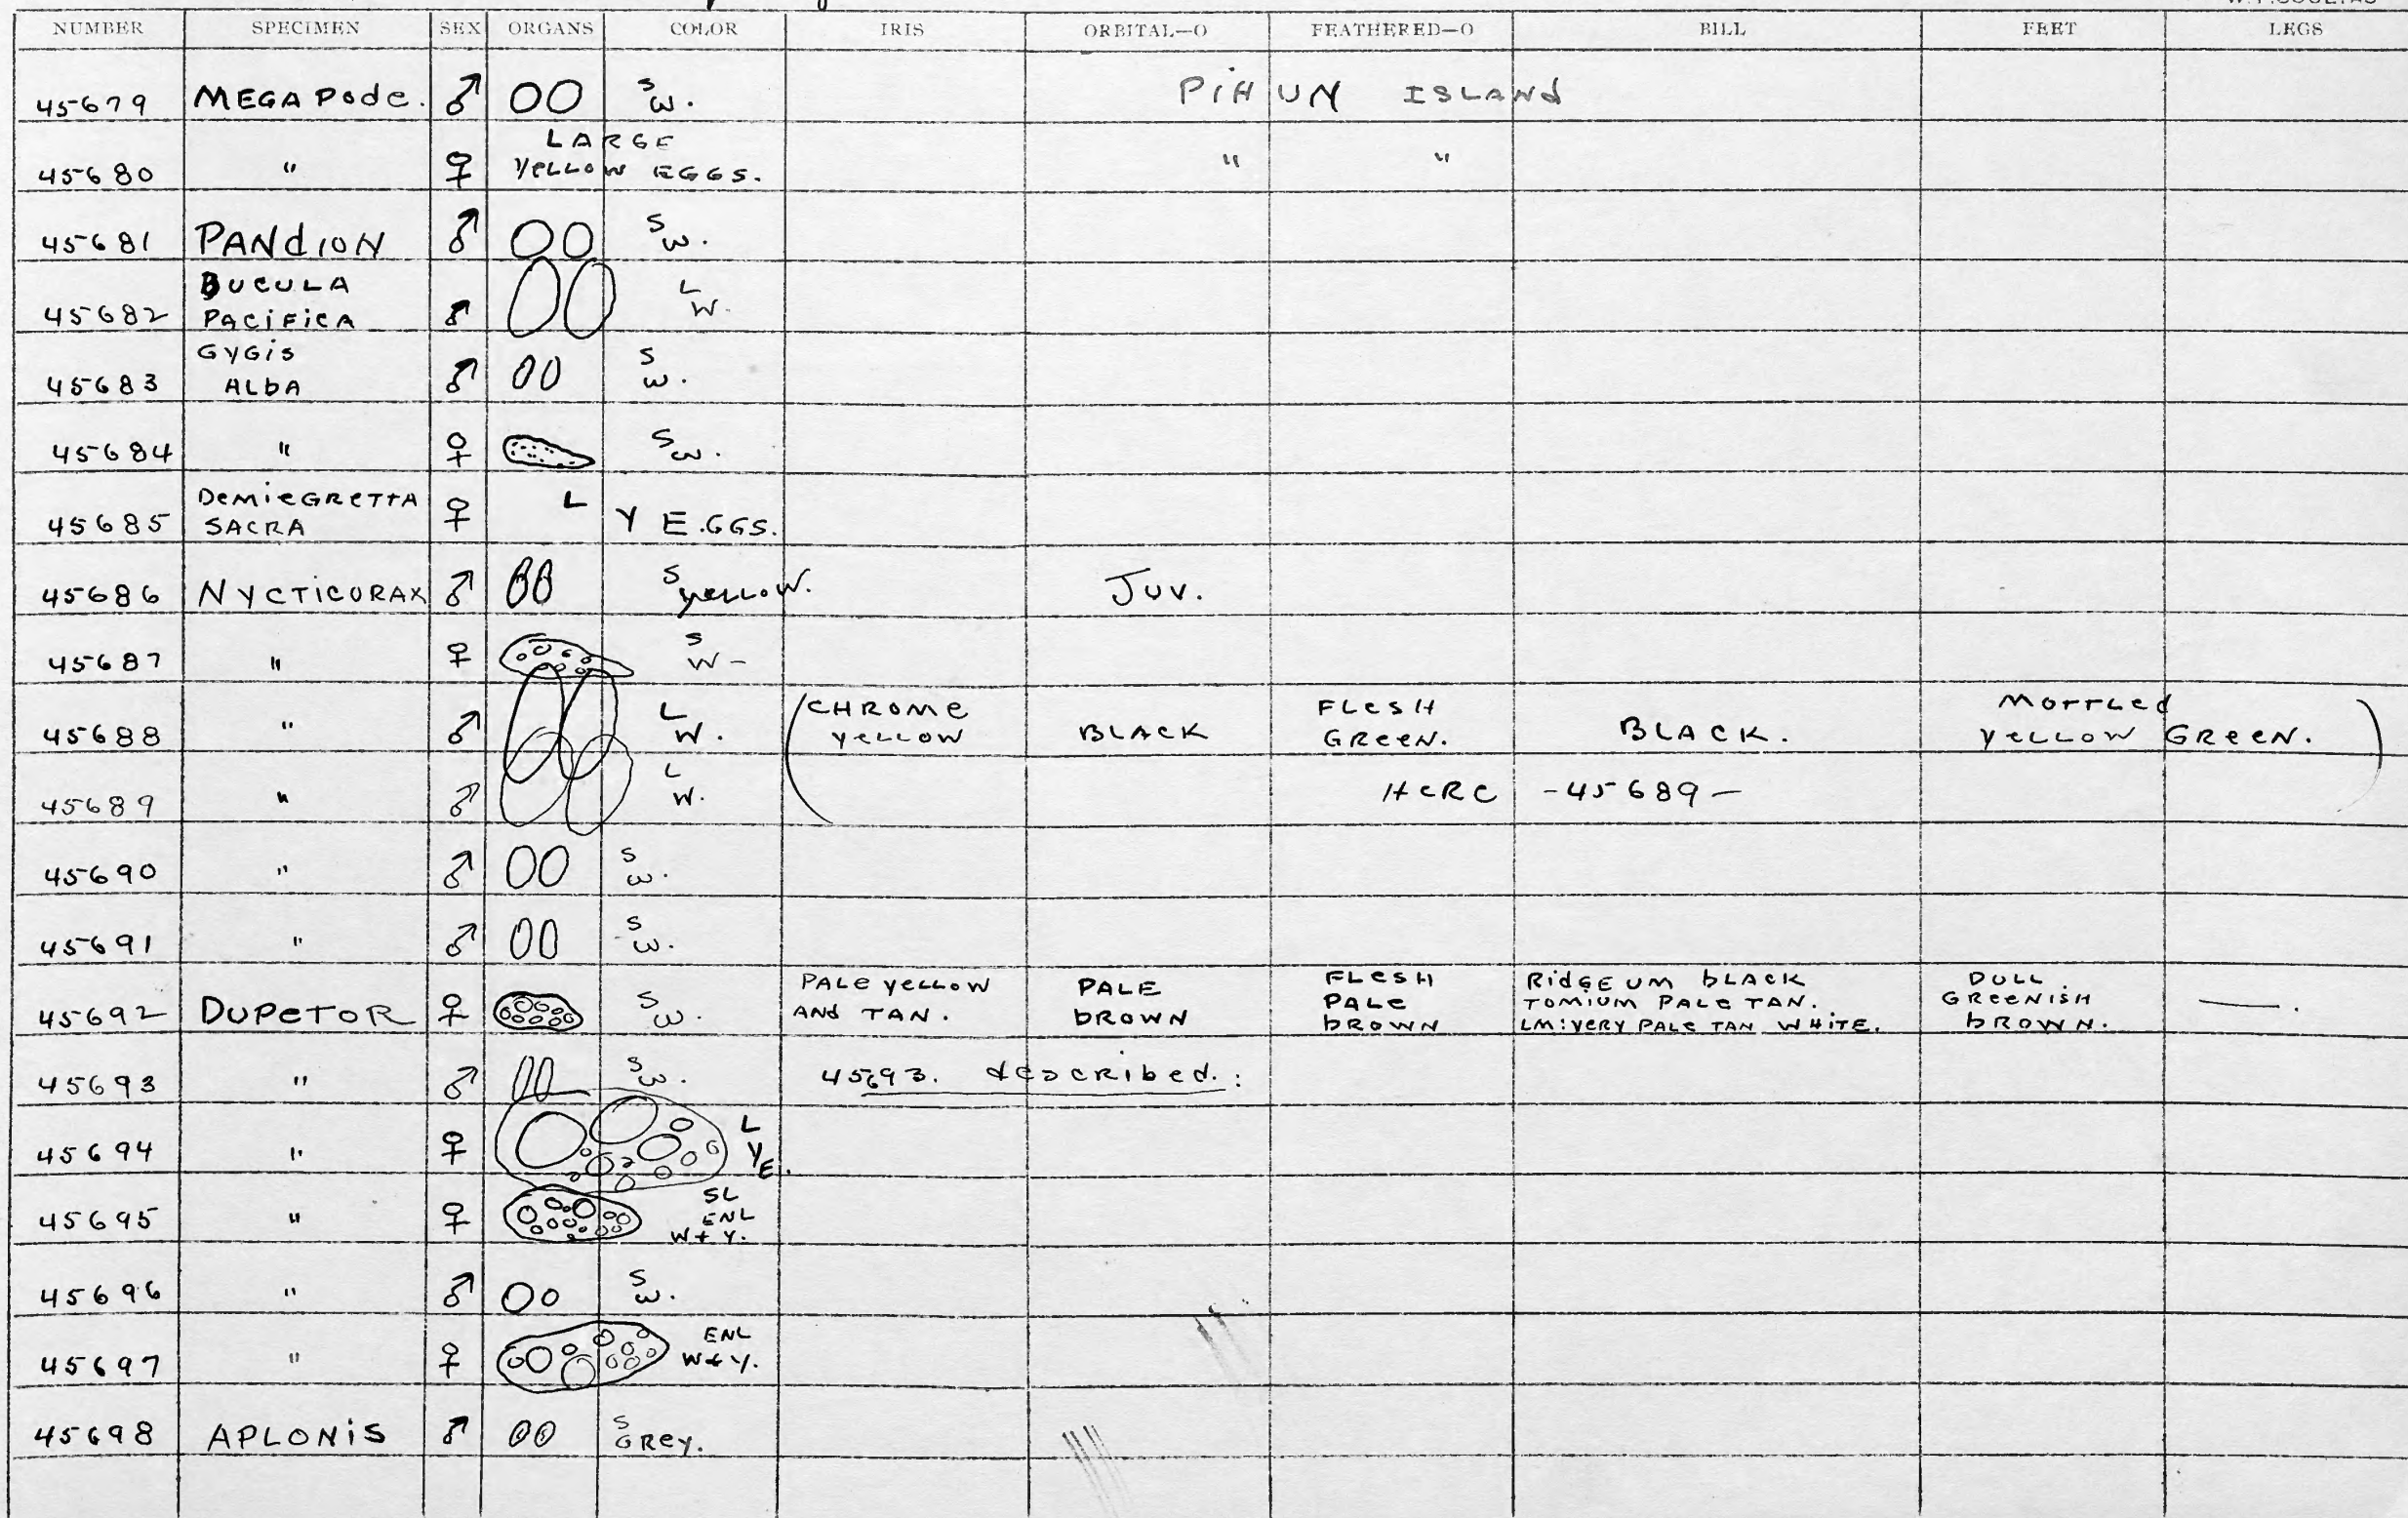 NUMBER SPECIMEN SEX ORGANS COLOR IRIS ORBITAL—O FEATHERED—O BILL FEET LEGS
45679 MEGAPODE. ♂ S W. PIHUN ISLAND
45680 " ♀ LARGE YELLOW EGGS. " "
45681 PANDION ♂ S W.
45682 BUCULA PACIFICA ♂ L W.
45683 GYGIS ALBA ♂ S W.
45684 " ♀ S W.
45685 DEMIEGRETTA SACRA ♀ L Y EGGS.
45686 NYCTICORAX ♂ S YELLOW. JUV.
45687 " ♀ S W -
45688 " ♂ L W. (CHROME YELLOW BLACK FLESH GREEN. BLACK. MOTTLED YELLOW GREEN.)
45689 " ♂ L W. HERE -45689-
45690 " ♂ S W.
45691 " ♂ S W.
45692 DUPETOR ♀ S W. PALE YELLOW AND TAN. PALE BROWN FLESH PALE BROWN RIDGE UM BLACK TOMIUM PALE TAN. LM: VERY PALE TAN WHITE. DULL GREENISH BROWN. —.
45693 " ♂ S W. 45693. described. :
45694 " ♀ L Y E.
45695 " ♀ SL ENL W + Y.
45696 " ♂ S W.
45697 " ♀ ENL W + Y.
45698 APLONIS ♂ S GREY.